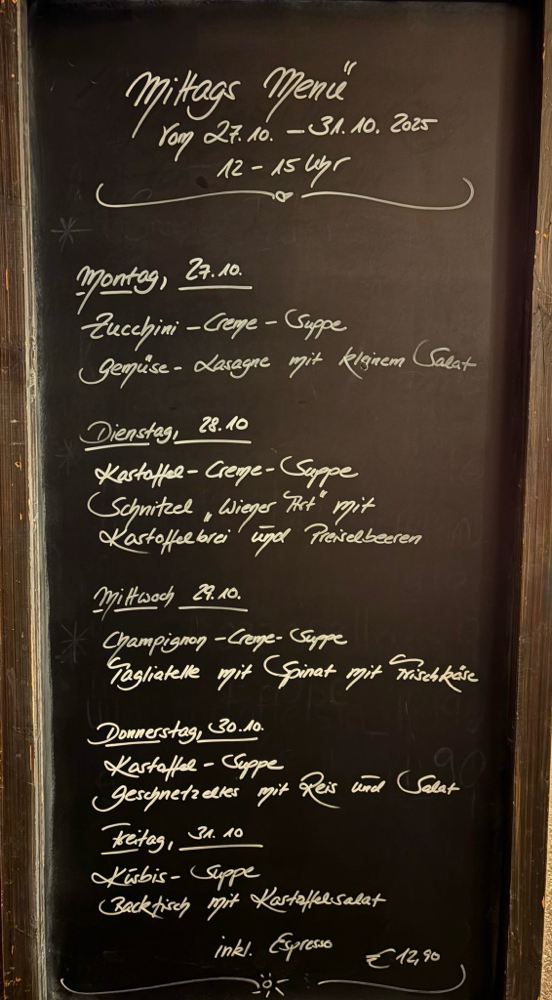 Mittags Menü
vom 27.10. – 31.10. 2025
12 – 15 Uhr
Montag, 27.10.
Zucchini – Creme – Suppe
Gemüse – Lasagne mit kleinem Salat
Dienstag, 28.10
Kartoffel – Creme – Suppe
Schnitzel „Wiener Art" mit
Kartoffelbrei und Preiselbeeren
Mittwoch 29.10.
Champignon – Creme – Suppe
Tagliatelle mit Spinat mit Frischkäse
Donnerstag, 30.10.
Kartoffel – Suppe
Geschnetzeltes mit Reis und Salat
Freitag, 31.10
Kürbis – Suppe
Backfisch mit Kartoffelsalat
inkl. Espresso
€ 12,90